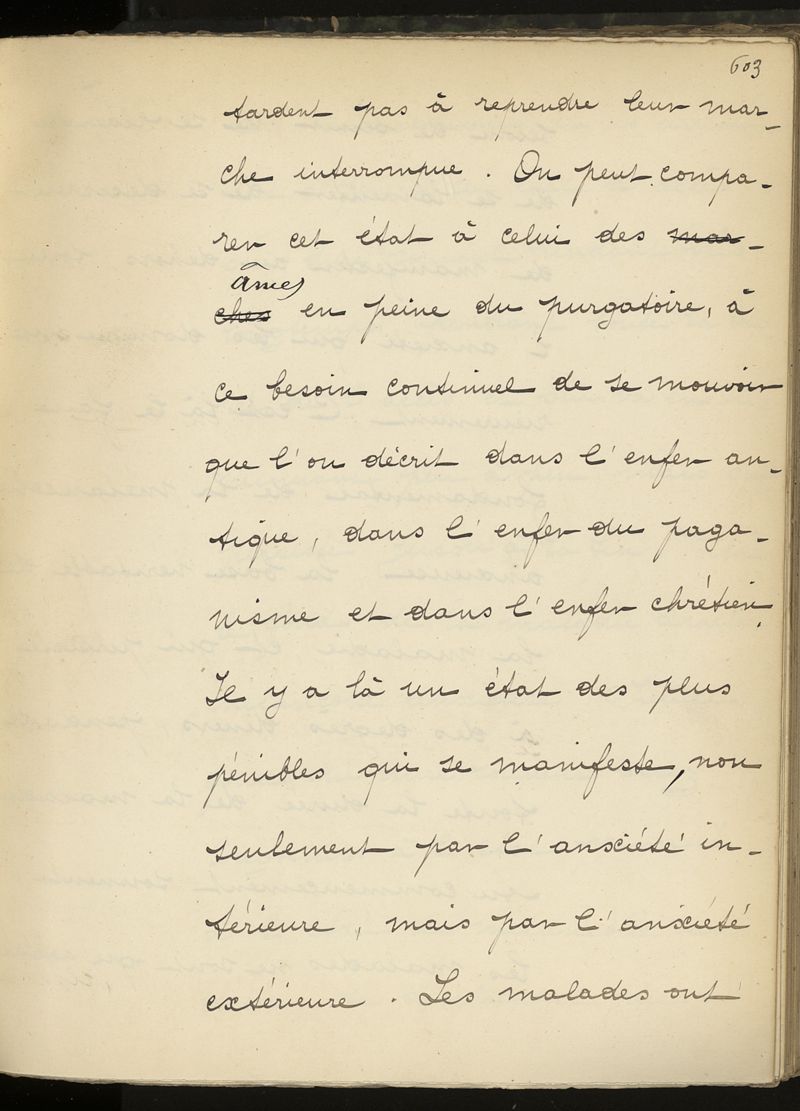 603
tardent pas à reprendre leur mar-
che interrompue. On peut compa-
rer cet état à celui des mar-
âmes
ches en peine du purgatoire, à
ce besoin continuel de se mouvoir
que l'on décrit dans l'enfer an-
tique, dans l'enfer du paga-
nisme et dans l'enfer chrétien.
Il y a là un état des plus
pénibles qui se manifeste, non
seulement par l'anxiété in-
térieure, mais par l'anxiété
extérieure. Les malades ont